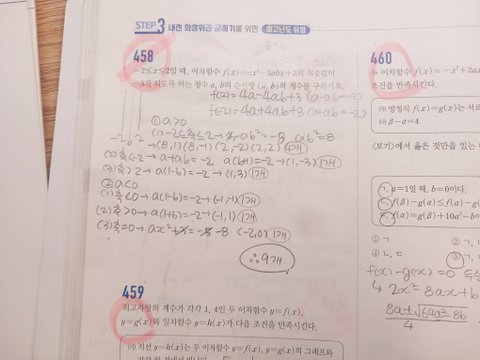 STEP 3 내신 최상위권 굳히기를 위한 최고난도 유형
458
-2≤x≤2일 때, 이차함수 f(x)=ax²-2abx+3의 최솟값이
-5가 되도록 하는 정수 a, b의 순서쌍 (a, b)의 개수를 구하시오.
f(2)=4a-4ab+3 (a-ab=-2)
f(-2)=4a+4ab+3 (a+ab=-2)
① a>0
(1) -2≤축≤2→ -ab²=-8 ab²=8
→(8,1)(8,-1)(2,-2)(2,2) 4개
(2) 축<-2→ a+ab=-2 a(b+1)=-2→(1,-3) 1개
(3) 축>2→ a(1-b)=-2→(1,3) 1개
② a<0
(1) 축<0→a(1-b)=-2→(-1,-1) 1개
(2) 축>0→a(1+b)=-2→(-1,1) 1개
(3) 축=0→ax² -8 (-2,0) 1개
∴9개
459
최고차항의 계수가 각각 1, 4인 두 이차함수 y=f(x),
y=g(x)와 일차함수 y=h(x)가 다음 조건을 만족시킨다.
㈎ 직선 y=h(x)는 두 이차함수 y=f(x), y=g(x)의 그래프와
460
두 이차함수 f(x)=-x²+2ax
조건을 만족시킨다.
㈎ 방정식 f(x)=g(x)는 서로
㈏ β-α=4
<보기>에서 옳은 것만을 있는
ㄱ. a=1일 때, b=0이다.
ㄴ. f(β)-g(α)≤f(a)-g(
ㄷ. f(a)=g(a)+10a²-b이
① ㄱ
③ ㄱ,
④ ㄴ, ㄷ
f(x)-g(x)=0
↳ 2x² 8ax+b
8a±√64a²-8b
4